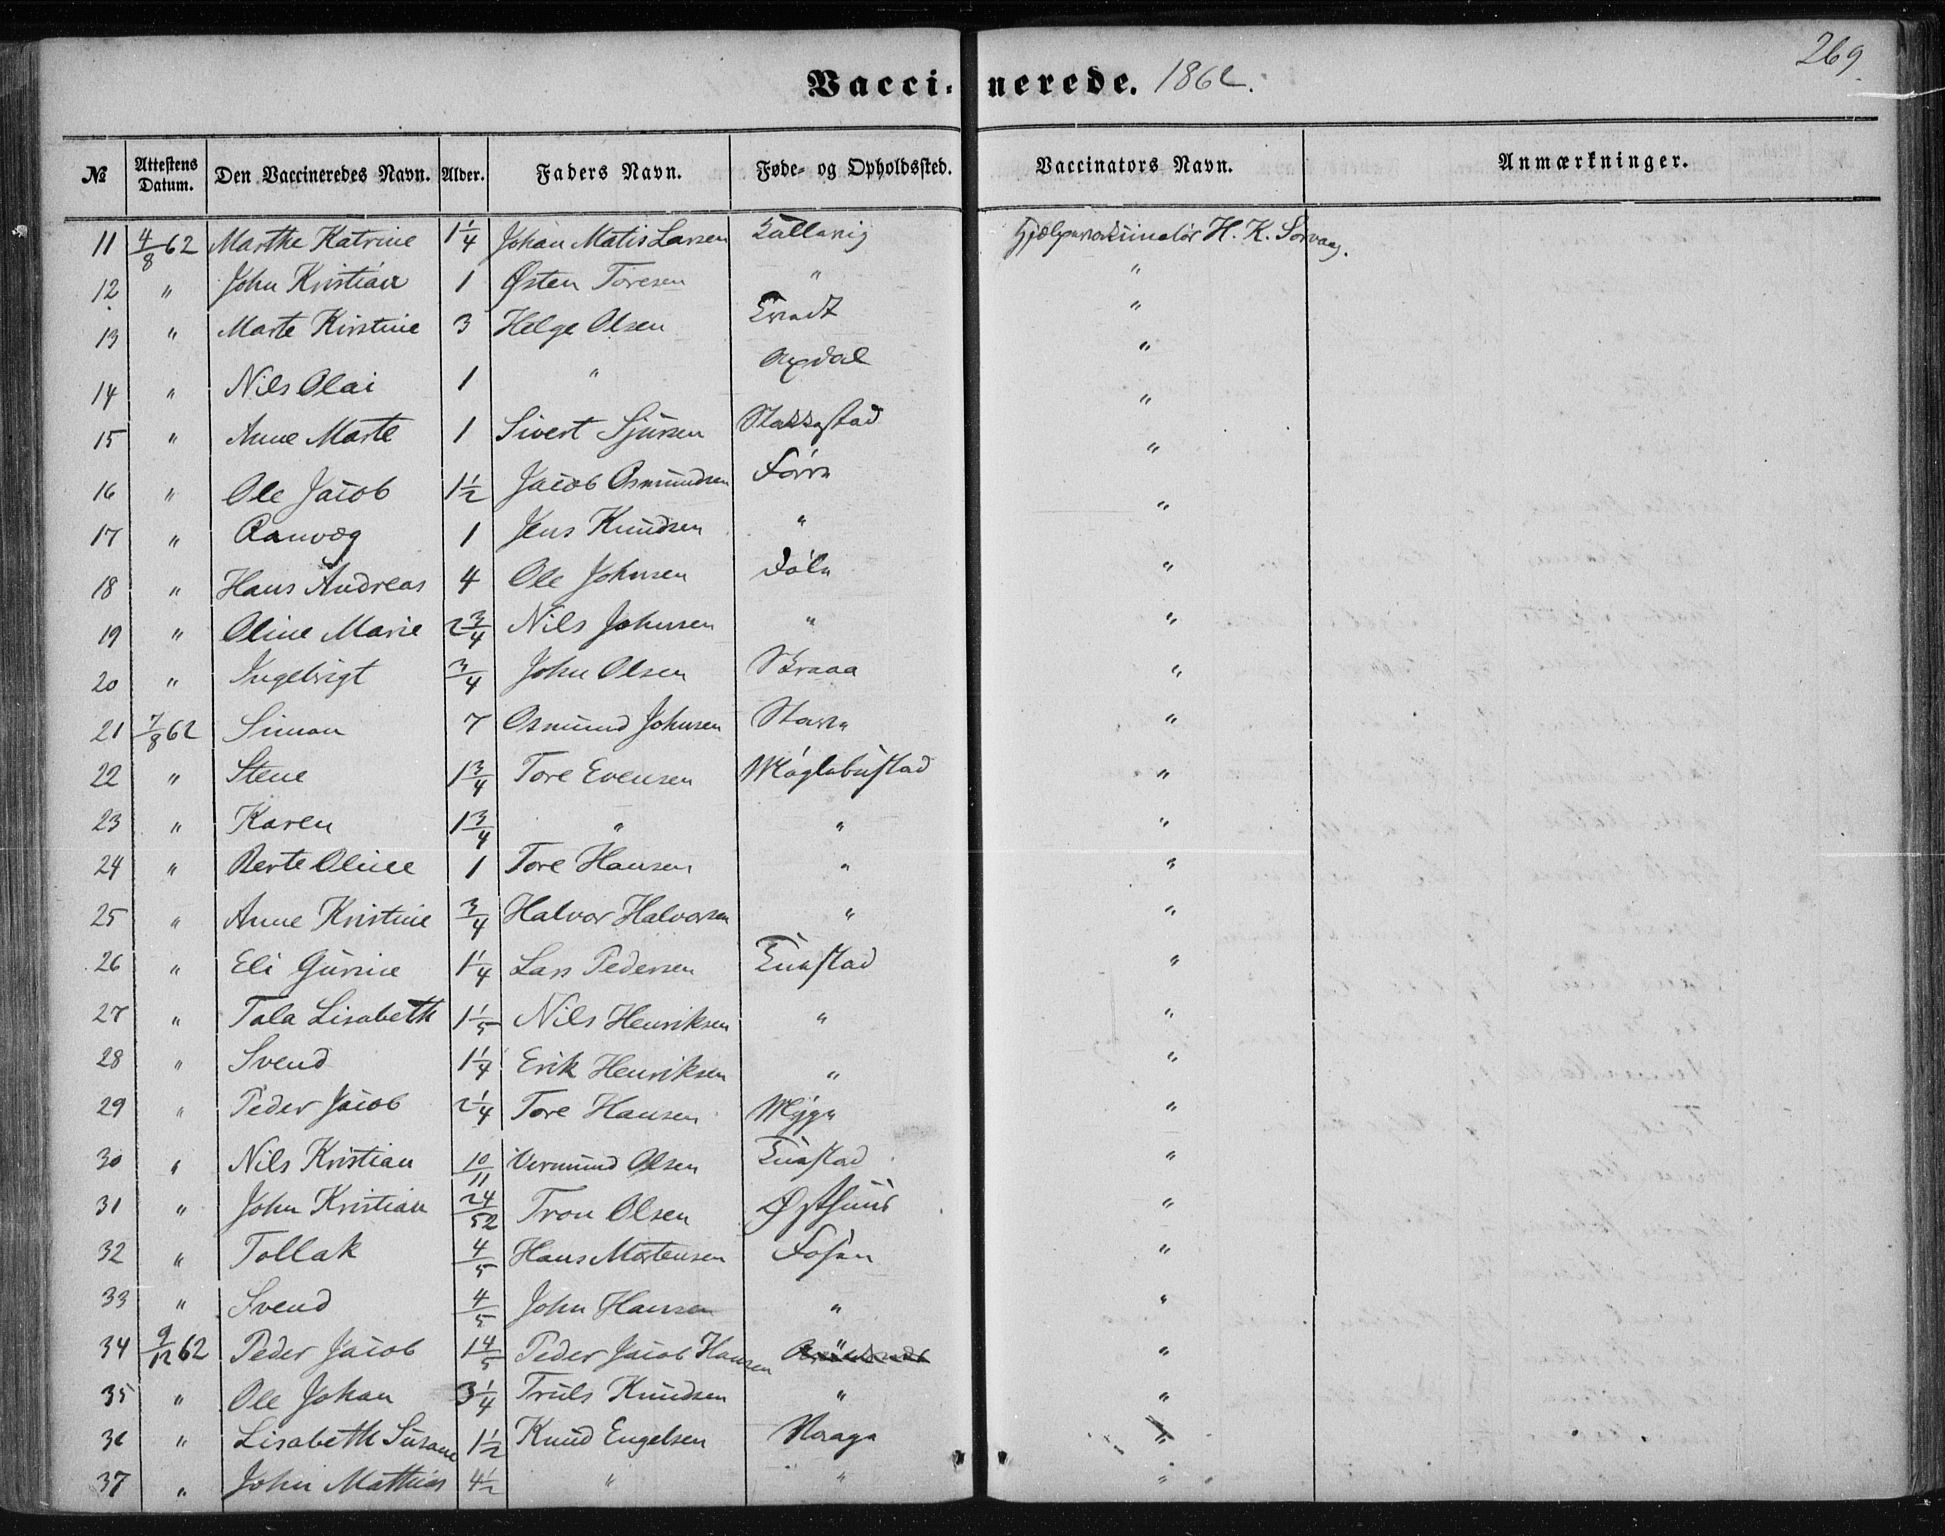 269.
Vaccinerede. 1862.
№ Attestens Datum. Den Vaccineredes Navn. Alder. Faders Navn. Føde- og Opholdssted. Vaccinators Navn. Anmærkninger.
11 4/8 62 Marthe Katrine 1 1/4 Johan Matis Larsen Hjælpevaksinatør H. K. Sørvaag.
12 " John Kristian 1 Østen Toresen " "
13 " Marte Kirstine 3 Helge Olsen "
14 " Nils Olai 1 " "
15 " Anne Marte 1 Sivert Sjursen Stakkestad "
16 " Ole Jacob 1 1/2 Jacob Osmundsen Førre "
17 " Ranvæg 1 Jens Knudsen " "
18 " Hans Andreas 4 Ole Johnsen Døle "
19 " Oline Marie 2 3/4 Nils Johnsen " "
20 " Ingebrigt 3/4 John Olsen "
21 7/8 62 Simon 7 Osmund Johnsen "
22 " Stene 1 3/4 Tore Evensen Møglebustad "
23 " Karen 1 3/4 " " "
24 " Berte Oline 1 Tore Hansen " "
25 " Anne Kristine 3/4 Halvor Halvorsen " "
26 " Eli Gurine 1 1/4 Lars Pedersen "
27 " Tala Lisabeth 1 1/5 Nils Henriksen " "
28 " Svend 1 1/4 Erik Henriksen " "
29 " Peder Jacob 2 1/4 Tore Hansen "
30 " Nils Kristian 10/11 Vermund Olsen "
31 " John Kristian 24/52 Tron Olsen Østhuus "
32 " Tollak 4/5 Hans Mortensen Fosen "
33 " Svend 4/5 John Hansen " "
34 9/12 62 Peder Jacob 1 4/5 Peder Jacob Hansen "
35 " Ole Johan 3 1/4 Truls Knudsen " "
36 " Lisabeth Susane 1 1/2 Knud Engelsen Vaage "
37 " John Mathias 4 1/2 " " "